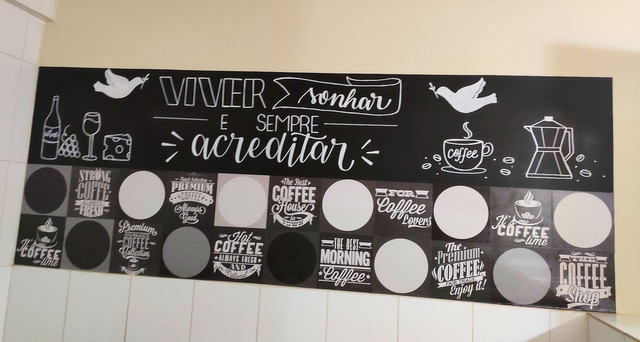 VIVER sonhar
E SEMPRE
acreditar
coffee
STRONG
COFFEE
FRESH
PREMIUM
COFFEE
Always
Good
The Best
COFFEE
House
in
TOWN
FOR
COFFEE
Lovers
It's
COFFEE
time
It's
COFFEE
time
Premium
COFFEE
Collection
Hot
COFFEE
ALWAYS FRESH
AND
THE BEST
MORNING
Coffee
The
Premium
COFFEE
FAIR TRADE
Enjoy it!
COFFEE
Shop